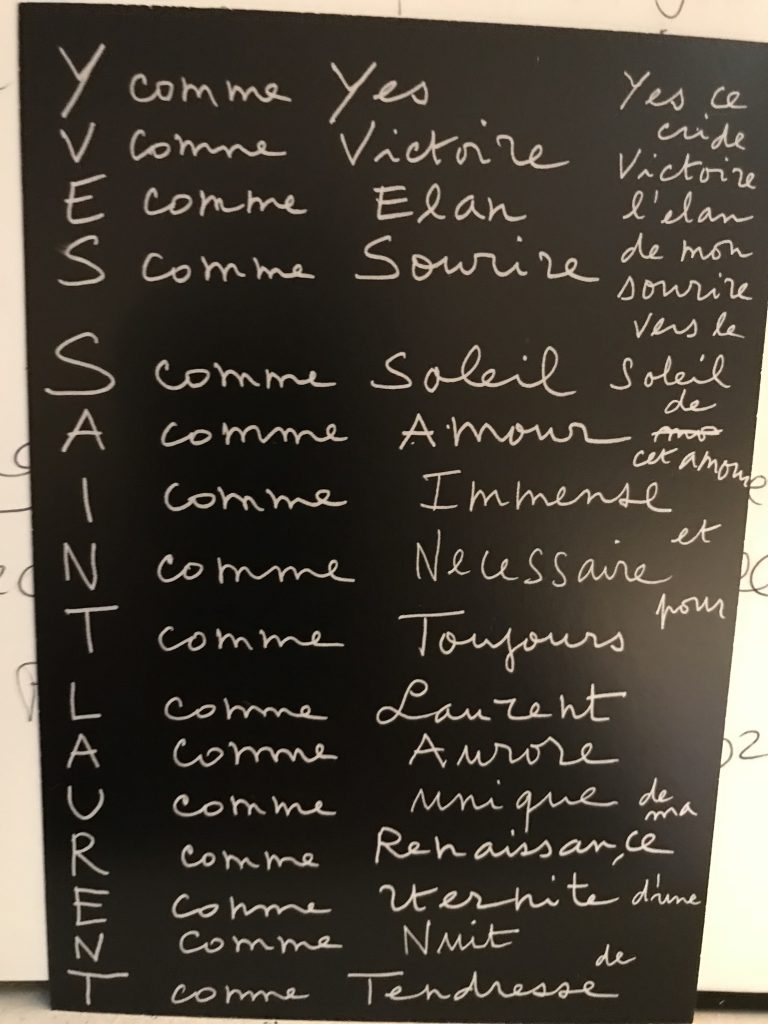 Y comme Yes
V comme Victoire
E comme Elan
S comme Sourire
S comme Soleil
A comme Amour
I comme Immense
et
N comme Necessaire
pour
T comme Toujours
L comme Laurent
A comme Aurore
U comme unique de ma
R comme Renaissance
E comme Eternite d'une
N comme Nuit
de
T comme Tendresse
Yes ce
cri de
Victoire
l'elan
de mon
sourire
vers le
Soleil
de
cet amour